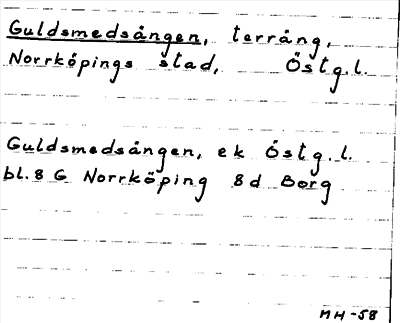 Guldsmedsängen, terräng,
Norrköpings stad, Östg.l.
Guldsmedsängen, ek Östg.l.
bl. 8 G Norrköping 8d Borg
MH-58